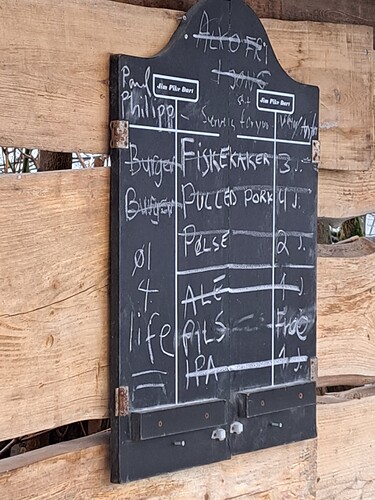 ALKOFRI
Paul
Philipp
Jim Pike Dart
Jim Pike Dart
Service for you
Burger FISKEKAKER 3
Burger PULLED PORK 4
PØLSE 2
Øl
4
life
ALE 1
PILS Free
IPA 1